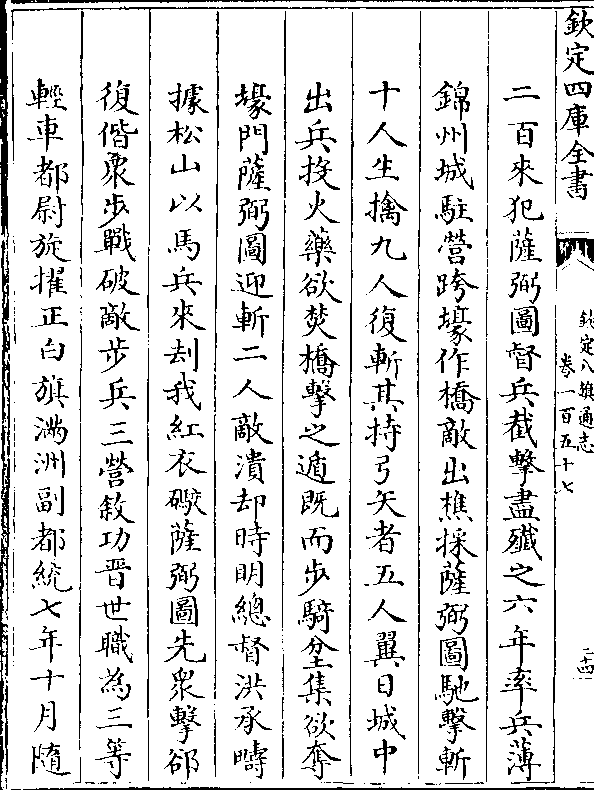 欽定四庫全書
欽定八旗通志
卷一百五十七
二十四
二百來犯薩弼圖督兵截擊盡殲之六年率兵薄
錦州城駐營跨壕作橋敵出樵採薩弼圖馳擊斬
十人生擒九人復斬其持弓矢者五人翼日城中
出兵投火藥欲焚橋擊之遁既而步騎坌集欲奪
壕門薩弼圖迎斬二人敵潰却時明總督洪承疇
據松山以馬兵來刦我紅衣礮薩弼圖先衆擊郤
復偕衆步戰破敵步兵三營敘功晉世職為三等
輕車都尉旋擢正白旗滿洲副都統七年十月隨